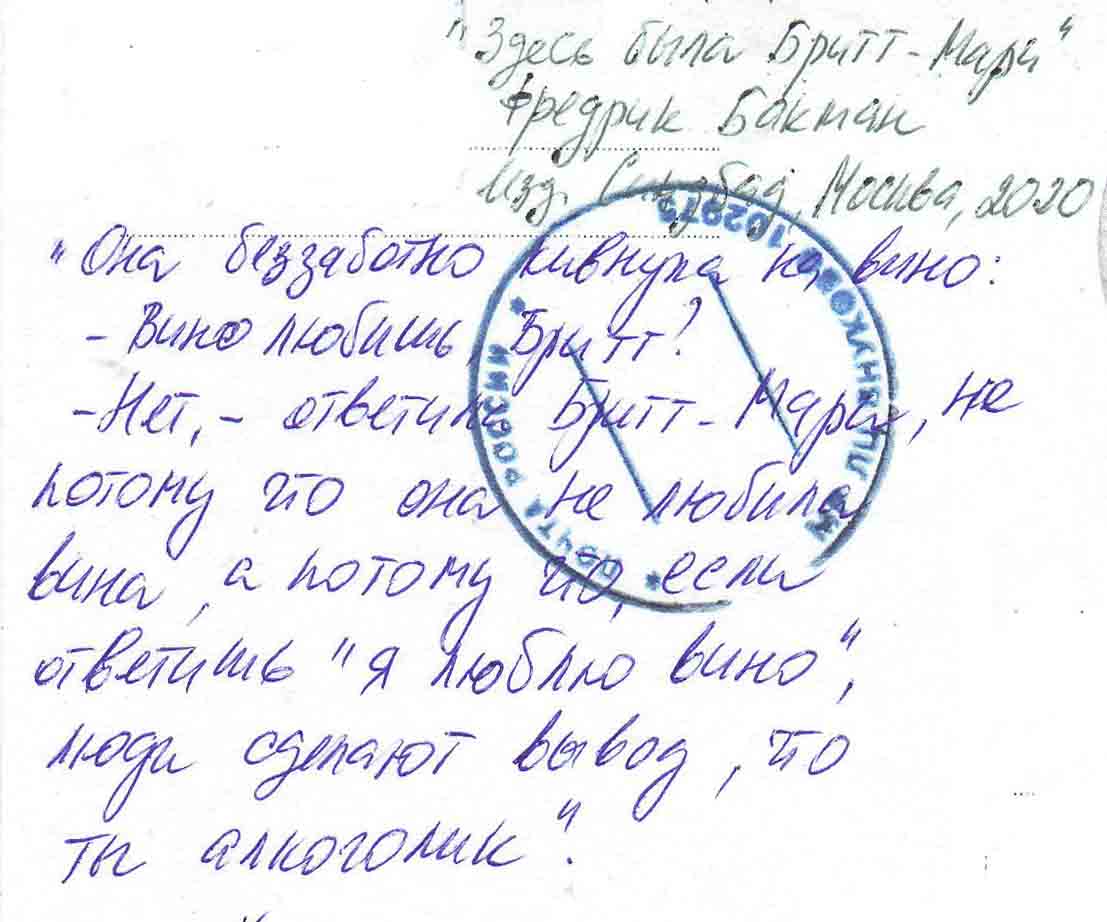 "Здесь была Бритт-Мари"
Фредрик Бакман
Изд. Синдбад, Москва, 2020
"Она беззаботно кивнула на вино:
- Вино любишь, Бритт?
- Нет, - ответила Бритт-Мари, не
потому что она не любила
вина, а потому что, если
ответишь "я люблю вино",
люди сделают вывод, что
ты алкоголик".
* ПОЧТА РОССИИ *
102975